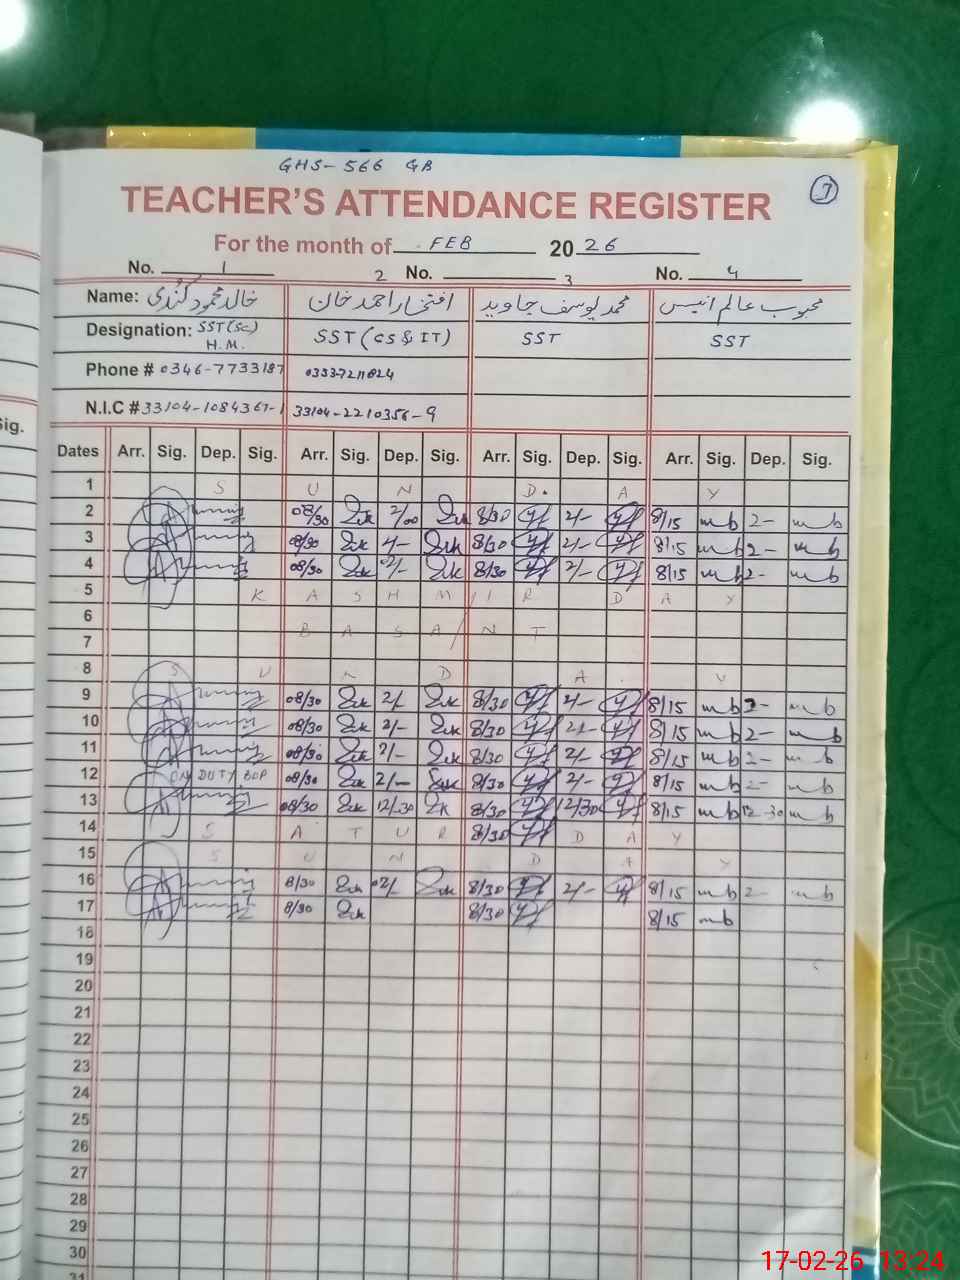 GHS-566 GB
TEACHER'S ATTENDANCE REGISTER
7
For the month of FEB 2026
No. 1 2 No. 3 No. 4
Name: خالد محمود افتخار احمد خان محمد یوسف جاوید محبوب عالم انیس
Designation: SST(SC) H.M. SST (CS & IT) SST SST
Phone # 0346-7733187
N.I.C # 33104-2210356-9
Sig.
Dates Arr. Sig. Dep. Sig. Arr. Sig. Dep. Sig. Arr. Sig. Dep. Sig. Arr. Sig. Dep. Sig.
1 S U N D A Y
2 08/30 2/00 8/30 2/- 8/15 mb 2- mb
3 08/30 8/30 2/- 8/15 mb 2- mb
4 08/30 2/- 8/30 2/- 8/15 mb 2- mb
5 K A S H M I R D A Y
6
7 B A S A N T
8 S U N D A Y
9 08/30 2/- 8/30 2/- 8/15 mb 2- mb
10 08/30 2/- 8/30 2/- 8/15 mb 2- mb
11 08/30 2/- 8/30 2/- 8/15 mb 2- mb
12 ON DUTY BOP 08/30 2/- 8/30 2/- 8/15 mb 2- mb
13 08/30 12/30 8/30 12/30 8/15 mb 12-30 mb
14 S A T U R 8/30 D A Y
15 S U N D A Y
16 8/30 02/- 8/30 2/- 8/15 mb 2- mb
17 8/30 8/30 8/15 mb
18
19
20
21
22
23
24
25
26
27
28
29
30
31
17-02-26 13:24